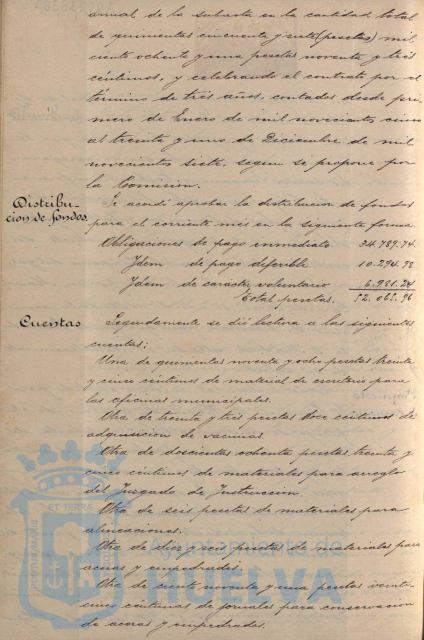 anual de la subasta en la cantidad total
de quinientas cincuenta y siete (pesetas) mil
ciento ochenta y una pesetas noventa y tres
céntimos, y celebrando el contrato por el
término de tres años, contados desde pri-
mero de Enero de mil novecientos cinco
al treinta y uno de Diciembre de mil
novecientos siete, segun se propone por
la Comisión.
Distribu-
cion de fondos.
Se acordó aprobar la distribucion de fondos
para el corriente mes en la siguiente forma:
Obligaciones de pago inmediato 34.789.74.
Idem de pago diferible 10.294.98
Idem de carácter voluntario 6.981.24
Total pesetas. 52.065.96
Cuentas
Seguidamente se dió lectura a las siguientes
cuentas:
Una de quinientas noventa y ocho pesetas treinta
y cinco céntimos de material de escritorio para
las oficinas municipales.
Otra de treinta y tres pesetas doce céntimos de
adquisicion de vacunas
Otra de doscientas ochenta pesetas treinta y
cinco céntimos de materiales para arreglo
del Juzgado de Instruccion.
Otra de seis pesetas de materiales para
alineaciones.
Otra de diez y seis pesetas de materiales para
aceras y empedrados.
Otra de ciento noventa y una pesetas veinti-
cinco céntimos de jornales para conservacion
de aceras y empedrados.
Ayuntamiento de
HUELVA